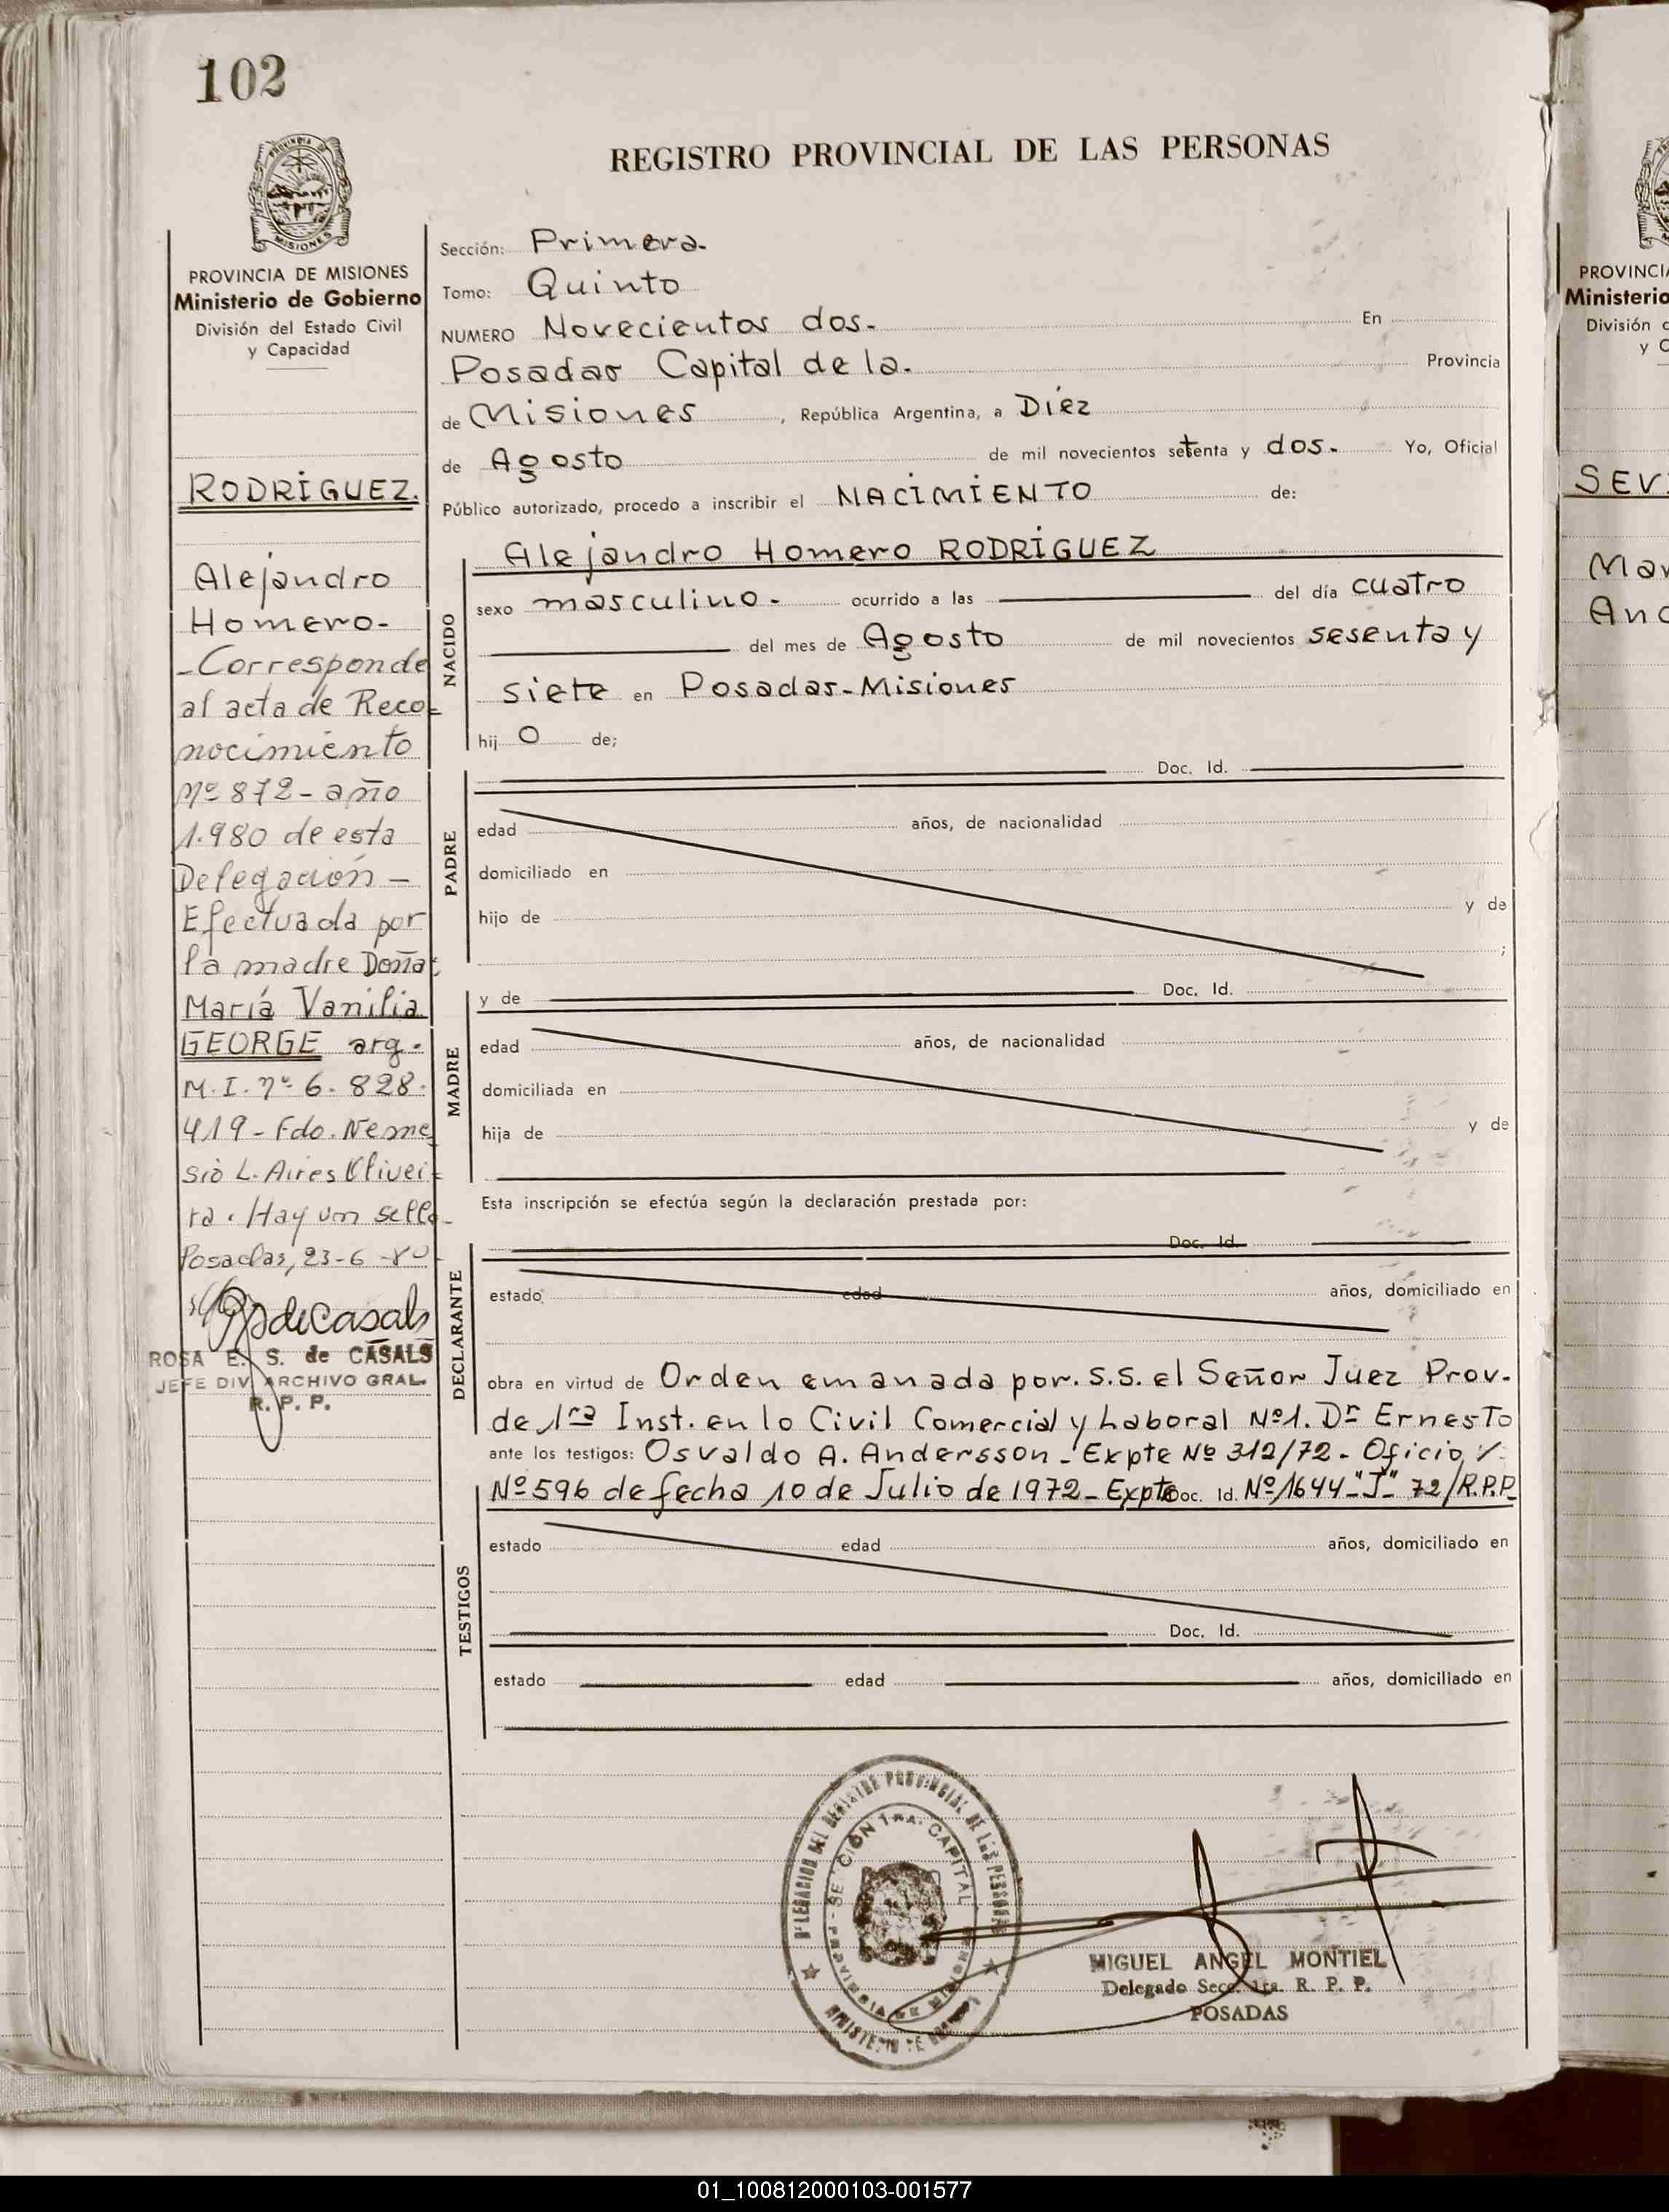 102
REGISTRO PROVINCIAL DE LAS PERSONAS
MISIONES
PROVINCIA DE MISIONES
Ministerio de Gobierno
División del Estado Civil
y Capacidad
RODRÍGUEZ.
Alejandro
Homero-
-Corresponde
al acta de Reco-
nocimiento
Nº 872- año
1.980 de esta
Delegación -
Efectuada por
la madre Doña
María Vanilia
GEORGE arg.
M.I. nº 6.828.
419- Fdo. Neme
sio L. Aires Olivei-
ra. Hay un sello-
Posadas, 23-6-80-
ROSA E. S. de CASALS
JEFE DIV. ARCHIVO GRAL.
R. P. P.
Sección: Primera.
Tomo: Quinto
NUMERO Novecientos dos. En
Posadas Capital de la. Provincia
de Misiones, República Argentina, a Diez
de Agosto de mil novecientos setenta y dos. Yo, Oficial
Público autorizado, procedo a inscribir el NACIMIENTO de:
NACIDO
Alejandro Homero RODRÍGUEZ
sexo masculino. ocurrido a las del día cuatro
del mes de Agosto de mil novecientos sesenta y
siete en Posadas-Misiones
hij o de;
PADRE
Doc. Id.
edad años, de nacionalidad
domiciliado en
hijo de y de
;
MADRE
y de Doc. Id.
edad años, de nacionalidad
domiciliada en
hija de y de
Esta inscripción se efectúa según la declaración prestada por:
DECLARANTE
Doc. Id.
estado edad años, domiciliado en
obra en virtud de Orden emanada por. S.S. el Señor Juez Prov.
de 1ra Inst. en lo Civil Comercial y Laboral Nº1. Dr Ernesto
ante los testigos: Osvaldo A. Andersson - Expte Nº 312/72 - Oficio
Nº 596 de fecha 10 de Julio de 1972 - Expte Doc. Id. Nº 1644-"J"-72/R.P.P.
TESTIGOS
estado edad años, domiciliado en
Doc. Id.
estado edad años, domiciliado en
DELEGACION DEL REGISTRO PROVINCIAL DE LAS PERSONAS
SECCIÓN 1RA. CAPITAL
PROVINCIA DE MISIONES
MINISTERIO DE GOBIERNO
MIGUEL ANGEL MONTIEL
Delegado Secc. 1ra. R. P. P.
POSADAS
PROVINCIA
Ministerio
División d
y C
SEV
Mar
And
01_100812000103-001577